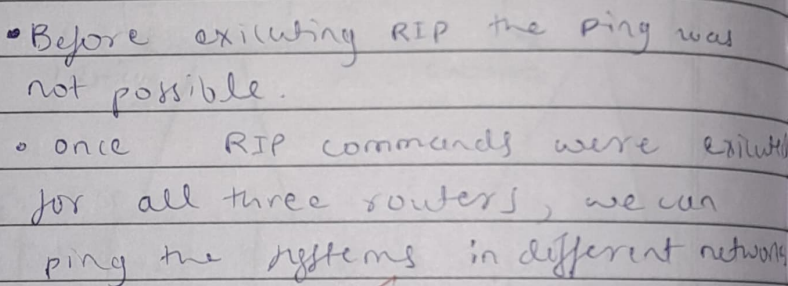 • Before exicuting RIP the ping was
not possible.
• once RIP commands were exicuted
for all three routers, we can
ping the systems in different network